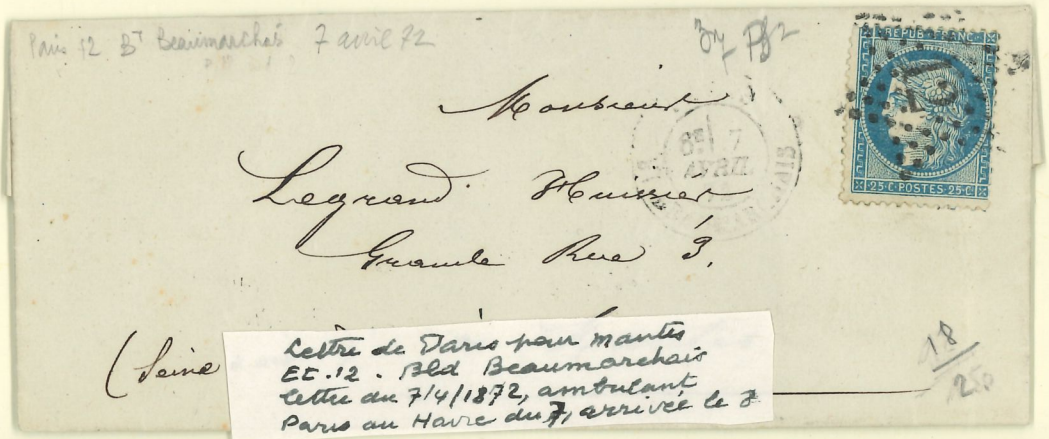 Paris 12 Bt Beaumarchais 7 avril 72
REPUB FRANC
Monsieur
6E 7
AVRIL
Legrand Huissier
25 C POSTES 25 C
Grande Rue 3.
(Seine
Lettre de Paris pour Mantes
EE.12. Bld Beaumarchais
lettre du 7/4/1872, ambulant
Paris au Havre du 7, arrivée le 8
18
250